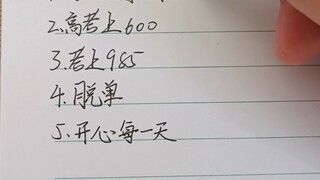 2.高考上600
3.考上985
4.脱单
5.开心每一天